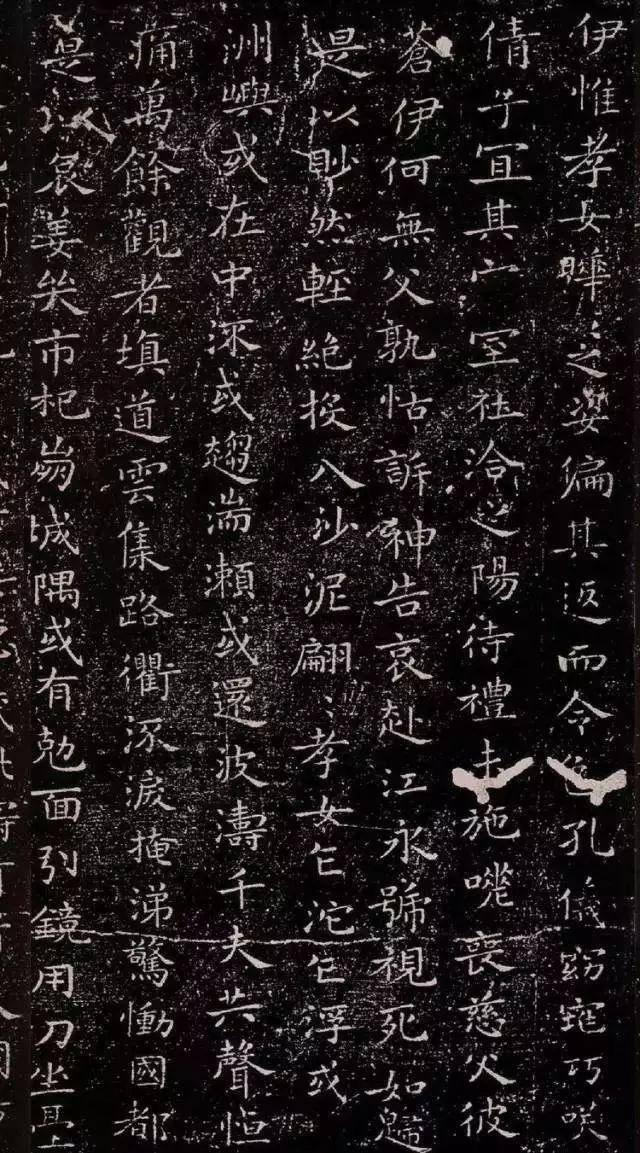 伊惟孝女曄〻之姿偏其返而令色孔儀窈窕巧咲
倩兮冝其家室在洽之陽待禮未施嗟喪慈父彼
蒼伊何無父孰怙訴神告哀赴江永號視死如歸
是以眇然輕絶投入沙泥翩〻孝女乍沈乍浮或
洲嶼或在中流或趨湍瀨或還波濤千夫失聲悼
痛萬餘觀者填道雲集路衢流淚掩涕驚慟國都
是以哀姜哭市杞崩城隅或有勀面引鏡用刀坐臺